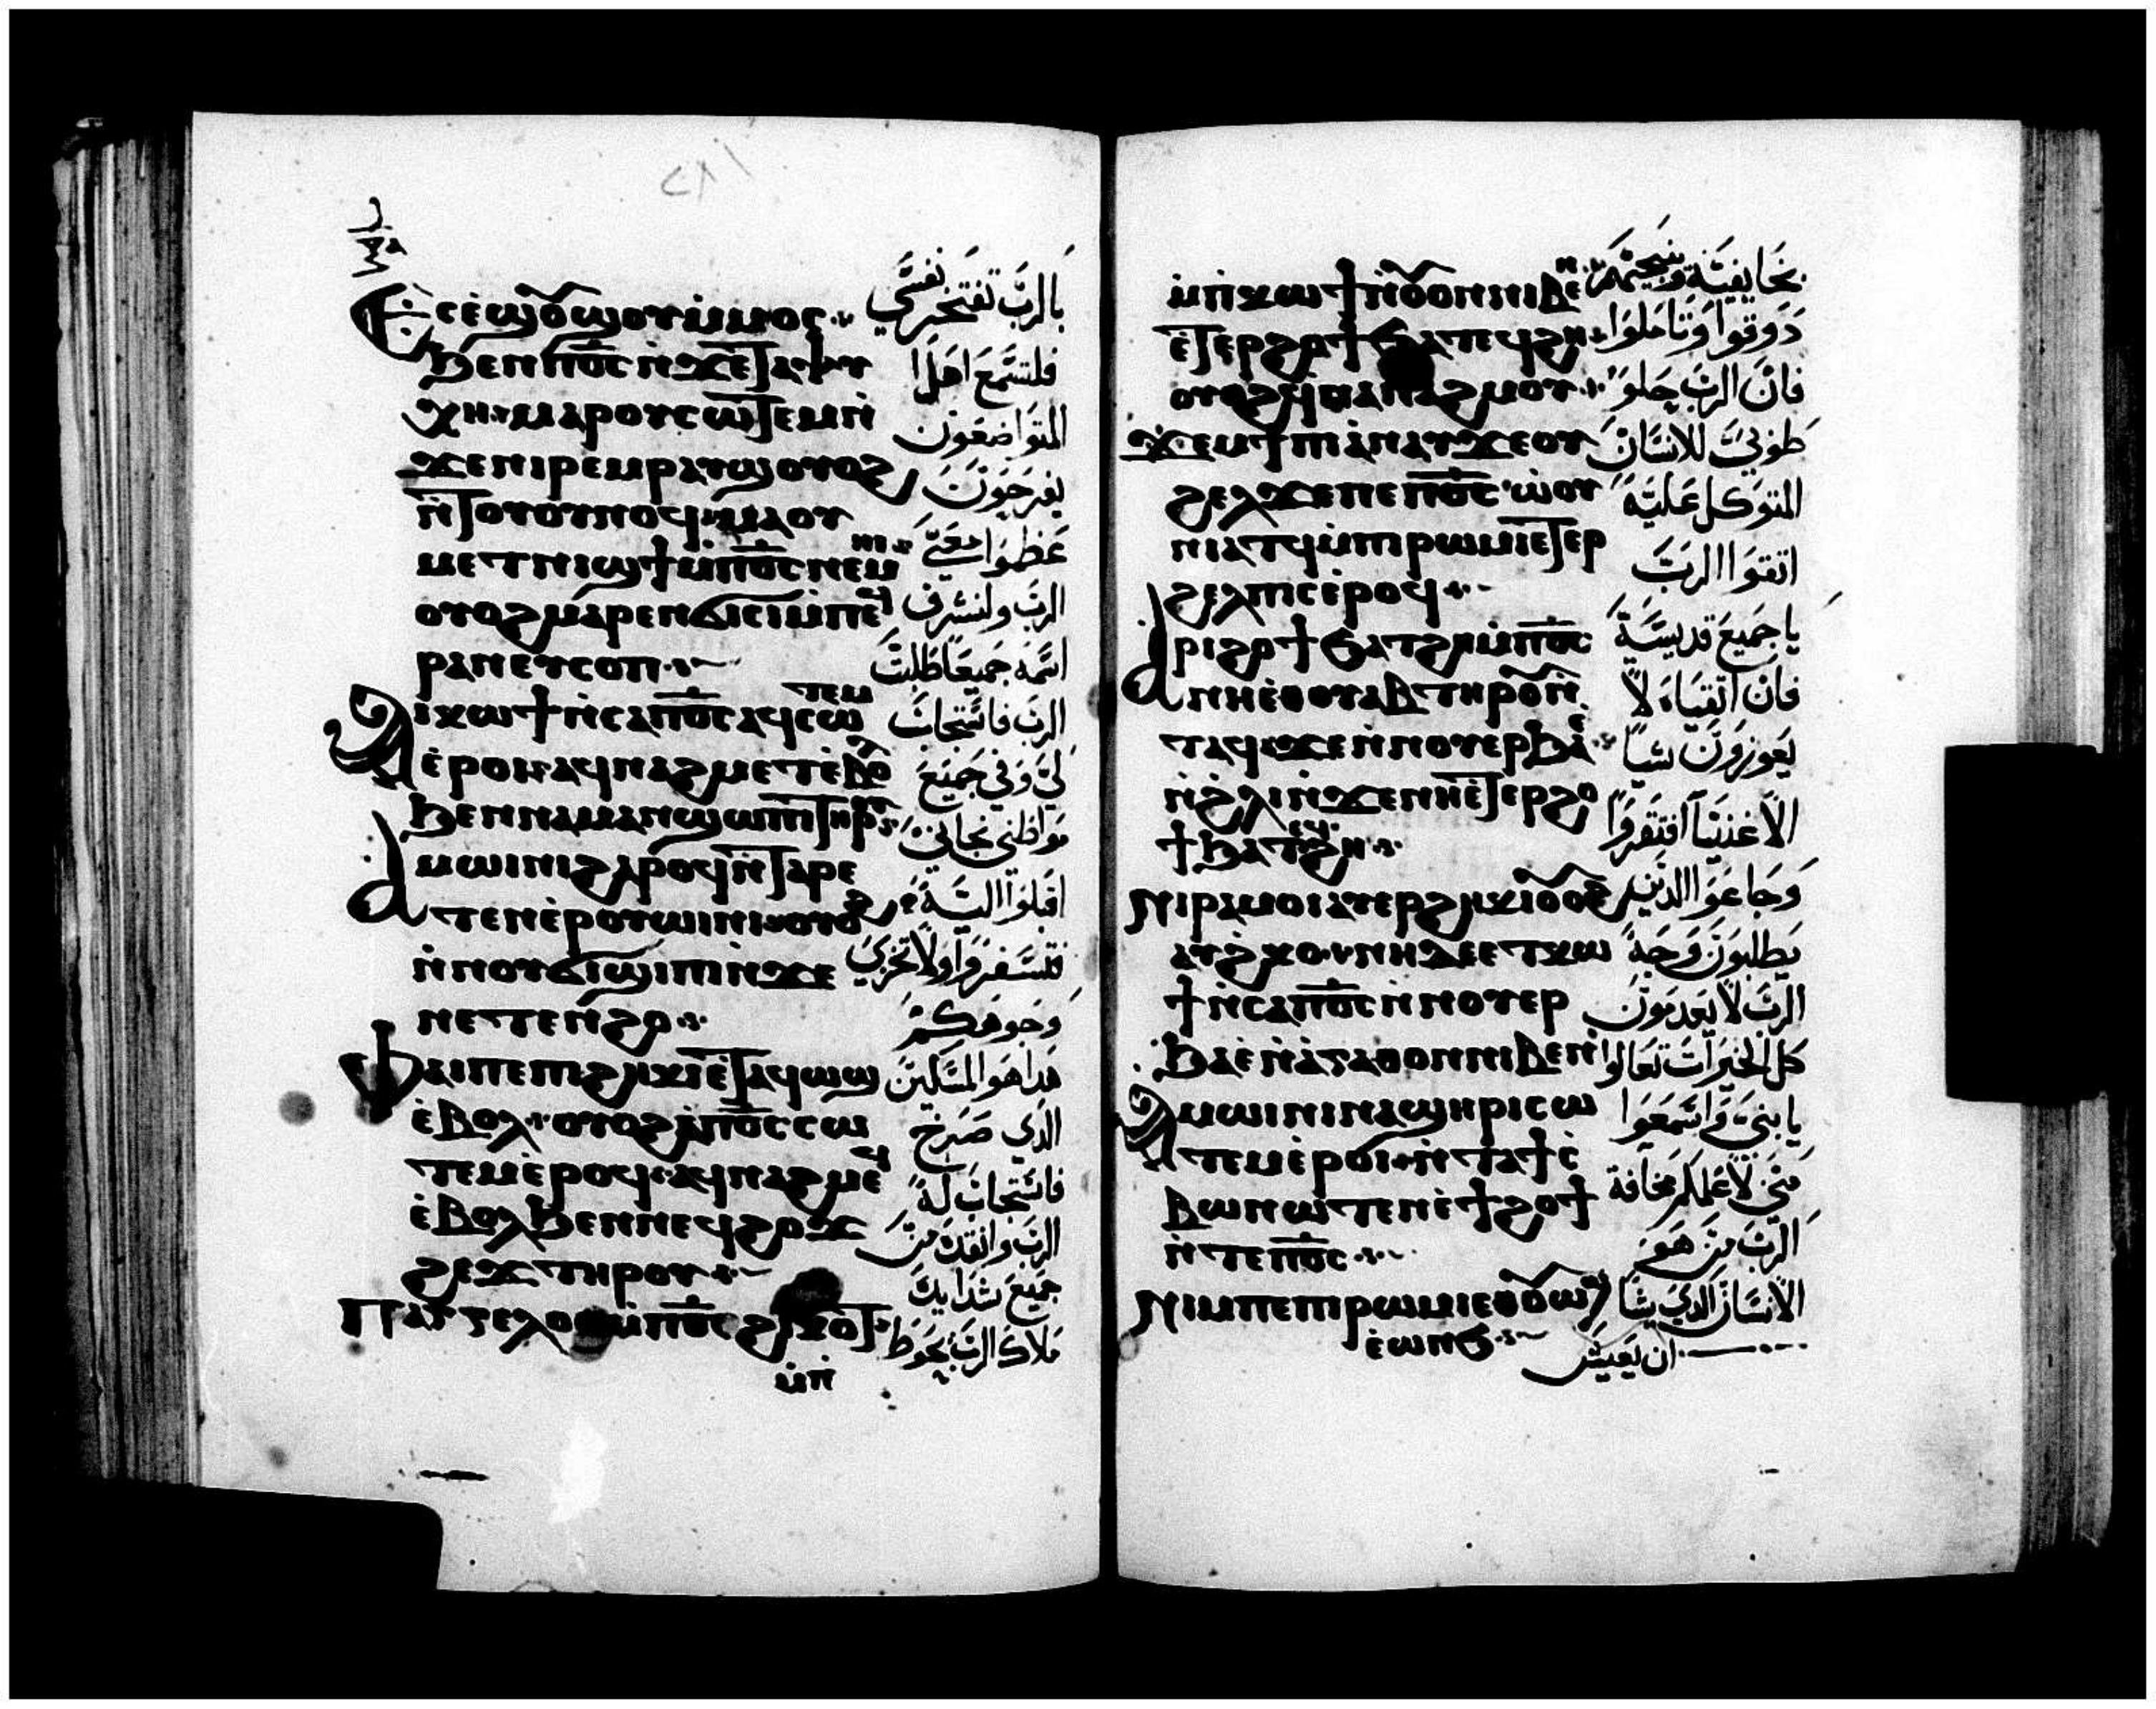 ⲉⲥⲉ̀ϣⲟⲩϣⲟⲩⲙ̀ⲙⲟⲥ
ϧⲉⲛⲡ︦ⲟ︦ⲥ︦ⲛ̀ϫⲉⲧⲁⲯⲩ
ⲭⲏ ⲙⲁⲣⲟⲩⲥⲱⲧⲉⲙⲛ̀
ϫⲉⲛⲓⲣⲉⲙⲣⲁⲩϣⲟⲩⲟϩ
ⲛ̀ⲧⲟⲩⲟⲩⲛⲟϥ ⲙⲁⲟⲩ
ⲙⲉⲧⲛⲓϣϯⲙ̀ⲡ︦ⲟ︦ⲥ︦ⲛⲉⲙⲏⲓ
ⲟⲩⲟϩⲙⲁⲣⲉⲛϭⲓⲥⲓⲙ̀ⲡⲉϥ
ⲣⲁⲛⲉⲩⲥⲟⲡ
ⲁⲓⲕⲱϯⲛ̀ⲥⲁⲡ︦ⲟ︦ⲥ︦ⲁϥⲥⲱⲧⲉⲙ
ⲉ̀ⲣⲟⲓ ⲁϥⲛⲁϩⲙⲉⲧⲉ̀ⲃⲟⲗ
ϧⲉⲛⲛⲁⲙⲁⲛϣⲱⲡⲓⲧⲏⲣⲟⲩ
ⲁⲙⲱⲓⲛⲓϩⲁⲣⲟϥⲛ̀ⲧⲁⲣⲉ
ⲧⲉⲛⲉ̀ⲣⲟⲩⲱⲓⲛⲓ ⲟⲩⲟϩ
ⲛ̀ⲛⲟⲩϭⲓϣⲓⲡⲓⲛ̀ϫⲉ
ⲛⲉⲧⲉⲛϩⲟ
ⲫⲁⲓⲡⲉⲡⲓϩⲏⲕⲓⲉ̀ⲧⲁϥⲱϣ
ⲉ̀ⲃⲟⲗ ⲟⲩⲟϩⲁ̀ⲡ︦ⲟ︦ⲥ︦ⲥⲱ
ⲧⲉⲙⲉ̀ⲣⲟϥ ⲁϥⲛⲁϩⲙⲉϥ
ⲉ̀ⲃⲟⲗϧⲉⲛⲛⲉϥϩⲟϫ
ϩⲉϫⲧⲏⲣⲟⲩ
ⲡⲁⲅⲅⲉⲗⲟⲥⲙ̀ⲡ︦ⲟ︦ⲥ︦ϩⲓⲕⲟⲧ
ⲙ̀ⲡ̀
بالرب تفتخر نفسي
فلتسمع اهلا
المتواضعون
يفرحون
عظموا معي
الرب ولنشرف
اسمه جميعا طلبت
الرب فاستجاب
لي وفي جميع
مواطني نجاني
اقبلوا اليه
فلتسفروا ولا تخزي
وجوهكم
هدا هو المسكين
الدي صرخ
فاستجاب له
الرب وانقده من
جميع شدايده
ملاك الرب يحوط
ⲙ̀ⲡ̀ⲕⲱϯⲛ̀ⲟⲩⲟⲛⲛⲓⲃⲉⲛ
ⲉ̀ⲧⲉⲣϩⲟϯϧⲁⲧⲉϥϩⲏ
ⲟⲩⲟϩϥ̀ⲛⲁⲛⲁϩⲙⲟⲩ
ϫⲉⲙϯⲡⲓⲁ̀ⲛⲁⲩϫⲉⲟⲩ
ϩⲉⲗϫⲉⲡⲉⲡ︦ⲟ︦ⲥ︦ ⲱ̀ⲟⲩ
ⲛⲓⲁⲧϥⲙ̀ⲡⲓⲣⲱⲙⲓⲉⲧⲉⲣ
ϩⲉⲗⲡⲓⲥⲉ̀ⲣⲟϥ
ⲁⲣⲓϩⲟϯϧⲁⲧϩⲏⲙ̀ⲡ︦ⲟ︦ⲥ︦
ⲛⲏⲉ̀ⲑⲟⲩⲁⲃⲧⲏⲣⲟⲩⲛ̀
ⲧⲁϥ ϫⲉⲛ̀ⲛⲟⲩⲉⲣϧⲁⲉ̀
ⲛ̀ϩⲗⲓⲛ̀ϫⲉⲛⲏⲉ̀ⲧⲉⲣϩⲟ
ϯϧⲁⲧⲉϥϩⲏ
ⲛⲓⲣⲁⲙⲟⲓⲁⲩⲉⲣϩⲏⲕⲓⲟⲩⲟϩ
ⲁⲩϩ̀ⲕⲟ ⲛⲏⲇⲉⲉⲧⲕⲱ
ϯⲛ̀ⲥⲁⲡ︦ⲟ︦ⲥ︦ⲛ̀ⲛⲟⲩⲉⲣ
ϧⲁⲉ̀ⲛ̀ⲁ̀ⲅⲁⲑⲟⲛⲛⲓⲃⲉⲛ
ⲁⲙⲱⲓⲛⲓⲛⲁϣⲏⲣⲓⲥⲱ
ⲧⲉⲙⲉ̀ⲣⲟⲓ ⲛ̀ⲧⲁϯⲥ̀
ⲃⲱⲛⲱⲧⲉⲛⲉ̀ϯϩⲟϯ
ⲛ̀ⲧⲉⲡ︦ⲟ︦ⲥ︦
ⲛⲓⲙⲡⲉⲡⲓⲣⲱⲙⲓⲉⲑⲟⲩⲱϣ
ⲉ̀ⲱⲛϧ
بخايفيه وينجيهم
دوقوا وتاملوا
فان الرب حلو
طوبي للانسان
المتوكل عليه
اتقوا الرب
يا جميع قديسيه
فان اتقياه لا
يعوزون شيا
الاغنيا افتقروا
وجاعوا الدين
يطلبون وجه
الرب لا يعدمون
كل الخيرات تعالوا
يا بني واسمعوا
مني لاعلمكم مخافة
الرب من هو
الانسان الدي يشا
ان يعيش